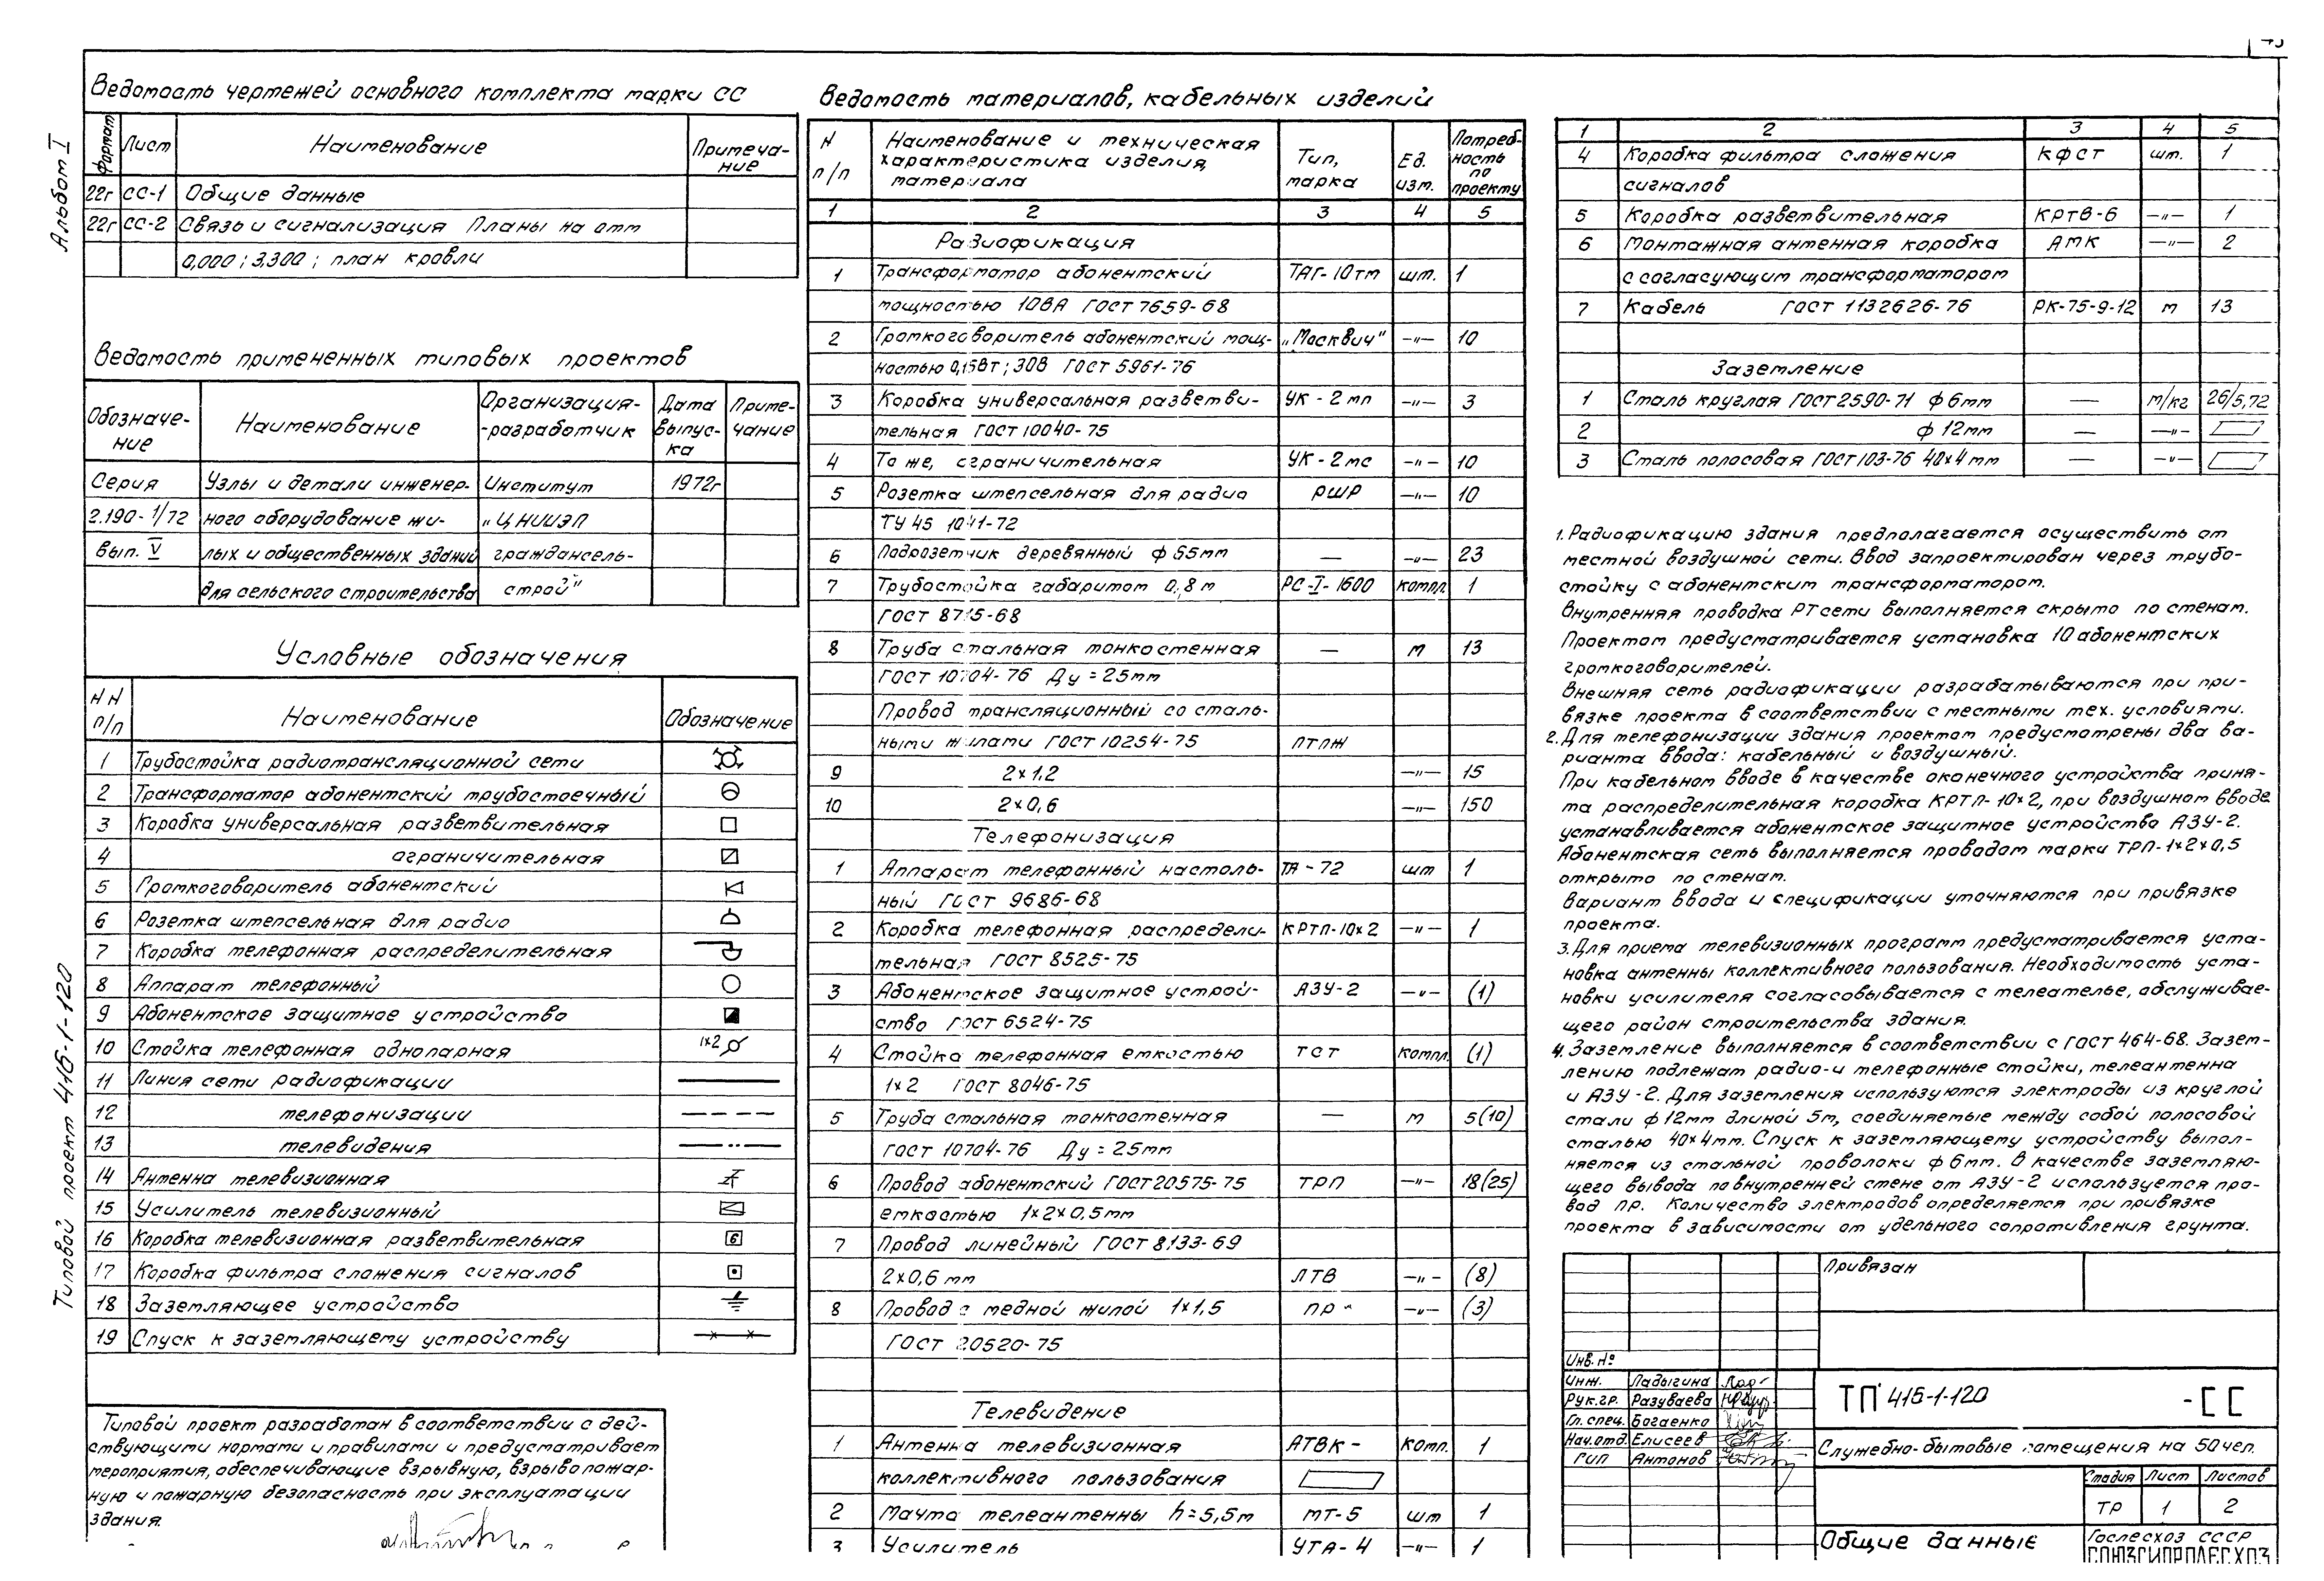 Альбом I
Типовой проект 416-1-120
Ведомость чертежей основного комплекта марки СС
Формат | Лист | Наименование | Примеча-
ние
22г | СС-1 | Общие данные
22г | СС-2 | Связь и сигнализация Планы на отм
0,000; 3,300; план кровли
Ведомость примененных типовых проектов
Обозначе-
ние | Наименование | Организация-
-разработчик | Дата
выпус-
ка | Приме-
чание
Серия | Узлы и детали инженер- | Институт | 1972г
2.190-1/72 | ного оборудование жи- | „ЦНИИЭП
вып. V | лых и общественных зданий | граждансель-
для сельского строительства | строй"
Условные обозначения
НН
п/п | Наименование | Обозначение
1 | Трубостойка радиотрансляционной сети
2 | Трансформатор абонентский трубостоечный
3 | Коробка универсальная разветвительная
4 | ограничительная
5 | Громкоговоритель абонентский
6 | Розетка штепсельная для радио
7 | Коробка телефонная распределительная
8 | Аппарат телефонный
9 | Абонентское защитное устройство
10 | Стойка телефонная однопарная | 1х2
11 | Линия сети радиофикации
12 | телефонизации
13 | телевидения
14 | Антенна телевизионная
15 | Усилитель телевизионный
16 | Коробка телевизионная разветвительная | 6
17 | Коробка фильтра сложения сигналов
18 | Заземляющее устройство
19 | Спуск к заземляющему устройству
Типовой проект разработан в соответствии с дей-
ствующими нормами и правилами и предусматривает
мероприятия, обеспечивающие взрывную, взрывопожар-
ную и пожарную безопасность при эксплуатации
здания.
Ведомость материалов, кабельных изделий
N
п/п | Наименование и техническая
характеристика изделия,
материала | Тип,
марка | Ед.
изм. | Потреб-
ность
по
проекту
1 | 2 | 3 | 4 | 5
Радиофикация
1 | Трансформатор абонентский | ТАГ-10тм | шт. | 1
мощностью 10ВА ГОСТ 7659-68
2 | Громкоговоритель абонентский мощ- | „Москвич" | —„— | 10
ностью 0,15Вт; 30В ГОСТ 5961-76
3 | Коробка универсальная разветви- | УК-2мп | —„— | 3
тельная ГОСТ 10040-75
4 | То же, ограничительная | УК-2мс | —„— | 10
5 | Розетка штепсельная для радио | РШР | —„— | 10
ТУ 45 1041-72
6 | Подрозетчик деревянный ф 55мм | — | —„— | 23
7 | Трубостойка габаритом 0,8 м | РС-I-1600 | компл. | 1
ГОСТ 8715-68
8 | Труба стальная тонкостенная | — | м | 13
ГОСТ 10704-76 Ду = 25мм
Провод трансляционный со сталь-
ными жилами ГОСТ 10254-75 | ПТПЖ
9 | 2х1,2 | —„— | 15
10 | 2х0,6 | —„— | 150
Телефонизация
1 | Аппарат телефонный настоль- | ТА-72 | шт | 1
ный ГОСТ 9686-68
2 | Коробка телефонная распредели- | КРТП-10х2 | —„— | 1
тельная ГОСТ 8525-75
3 | Абонентское защитное устрой- | АЗУ-2 | —„— | (1)
ство ГОСТ 6524-75
4 | Стойка телефонная емкостью | ТСТ | компл. | (1)
1х2 ГОСТ 8046-75
5 | Труба стальная тонкостенная | — | м | 5(10)
ГОСТ 10704-76 Ду = 25мм
6 | Провод абонентский ГОСТ 20575-75 | ТРП | —„— | 18(25)
емкостью 1х2х0,5мм
7 | Провод линейный ГОСТ 8133-69
2х0,6 мм | ЛТВ | —„— | (8)
8 | Провод с медной жилой 1х1,5 | ПР | —„— | (3)
ГОСТ 20520-75
Телевидение
1 | Антенна телевизионная | АТВК- | комп. | 1
коллективного пользования
2 | Мачта телеантенны h=5,5м | МТ-5 | шт | 1
3 | Усилитель | УТА-4 | —„— | 1
1 | 2 | 3 | 4 | 5
4 | Коробка фильтра сложения | КФСТ | шт. | 1
сигналов
5 | Коробка разветвительная | КРТВ-6 | —„— | 1
6 | Монтажная антенная коробка | АМК | —„— | 2
с согласующим трансформатором
7 | Кабель ГОСТ 1132626-76 | РК-75-9-12 | м | 13
Заземление
1 | Сталь круглая ГОСТ 2590-71 ф 6мм | — | м/кг | 26/5,72
2 | ф 12мм | — | —„—
3 | Сталь полосовая ГОСТ 103-76 40х4мм | — | —„—
1. Радиофикацию здания предполагается осуществить от
местной воздушной сети. Ввод запроектирован через трубо-
стойку с абонентским трансформатором.
Внутренняя проводка РТ сети выполняется скрыто по стенам.
Проектом предусматривается установка 10 абонентских
громкоговорителей.
Внешняя сеть радиофикации разрабатываются при при-
вязке проекта в соответствии с местными тех. условиями.
2. Для телефонизации здания проектом предусмотрены два ва-
рианта ввода: кабельный и воздушный.
При кабельном вводе в качестве оконечного устройства приня-
та распределительная коробка КРТП-10х2, при воздушном вводе
устанавливается абонентское защитное устройство АЗУ-2.
Абонентская сеть выполняется проводом марки ТРП-1х2х0,5
открыто по стенам.
Вариант ввода и спецификации уточняются при привязке
проекта.
3. Для приема телевизионных программ предусматривается уста-
новка антенны коллективного пользования. Необходимость уста-
новки усилителя согласовывается с телеателье, обслуживаю-
щего район строительства здания.
4. Заземление выполняется в соответствии с ГОСТ 464-68. Зазем-
лению подлежат радио-и телефонные стойки, телеантенна
и АЗУ-2. Для заземления используются электроды из круглой
стали ф 12мм длиной 5м, соединяемые между собой полосовой
сталью 40х4мм. Спуск к заземляющему устройству выпол-
няется из стальной проволоки ф 6мм. В качестве заземляю-
щего вывода по внутренней стене от АЗУ-2 используется про-
вод ПР. Количество электродов определяется при привязке
проекта в зависимости от удельного сопротивления грунта.
Привязан
Инв. №
Инж. | Ладыгина
Рук.гр. | Разуваева
Гл. спец. | Богаенко
Нач.отд. | Елисеев
ГИП | Антонов
ТП 416-1-120 -СС
Служебно-бытовые помещения на 50 чел.
Стадия | Лист | Листов
ТР | 1 | 2
Общие данные
Гослесхоз СССР
СОЮЗГИПРОЛЕСХОЗ